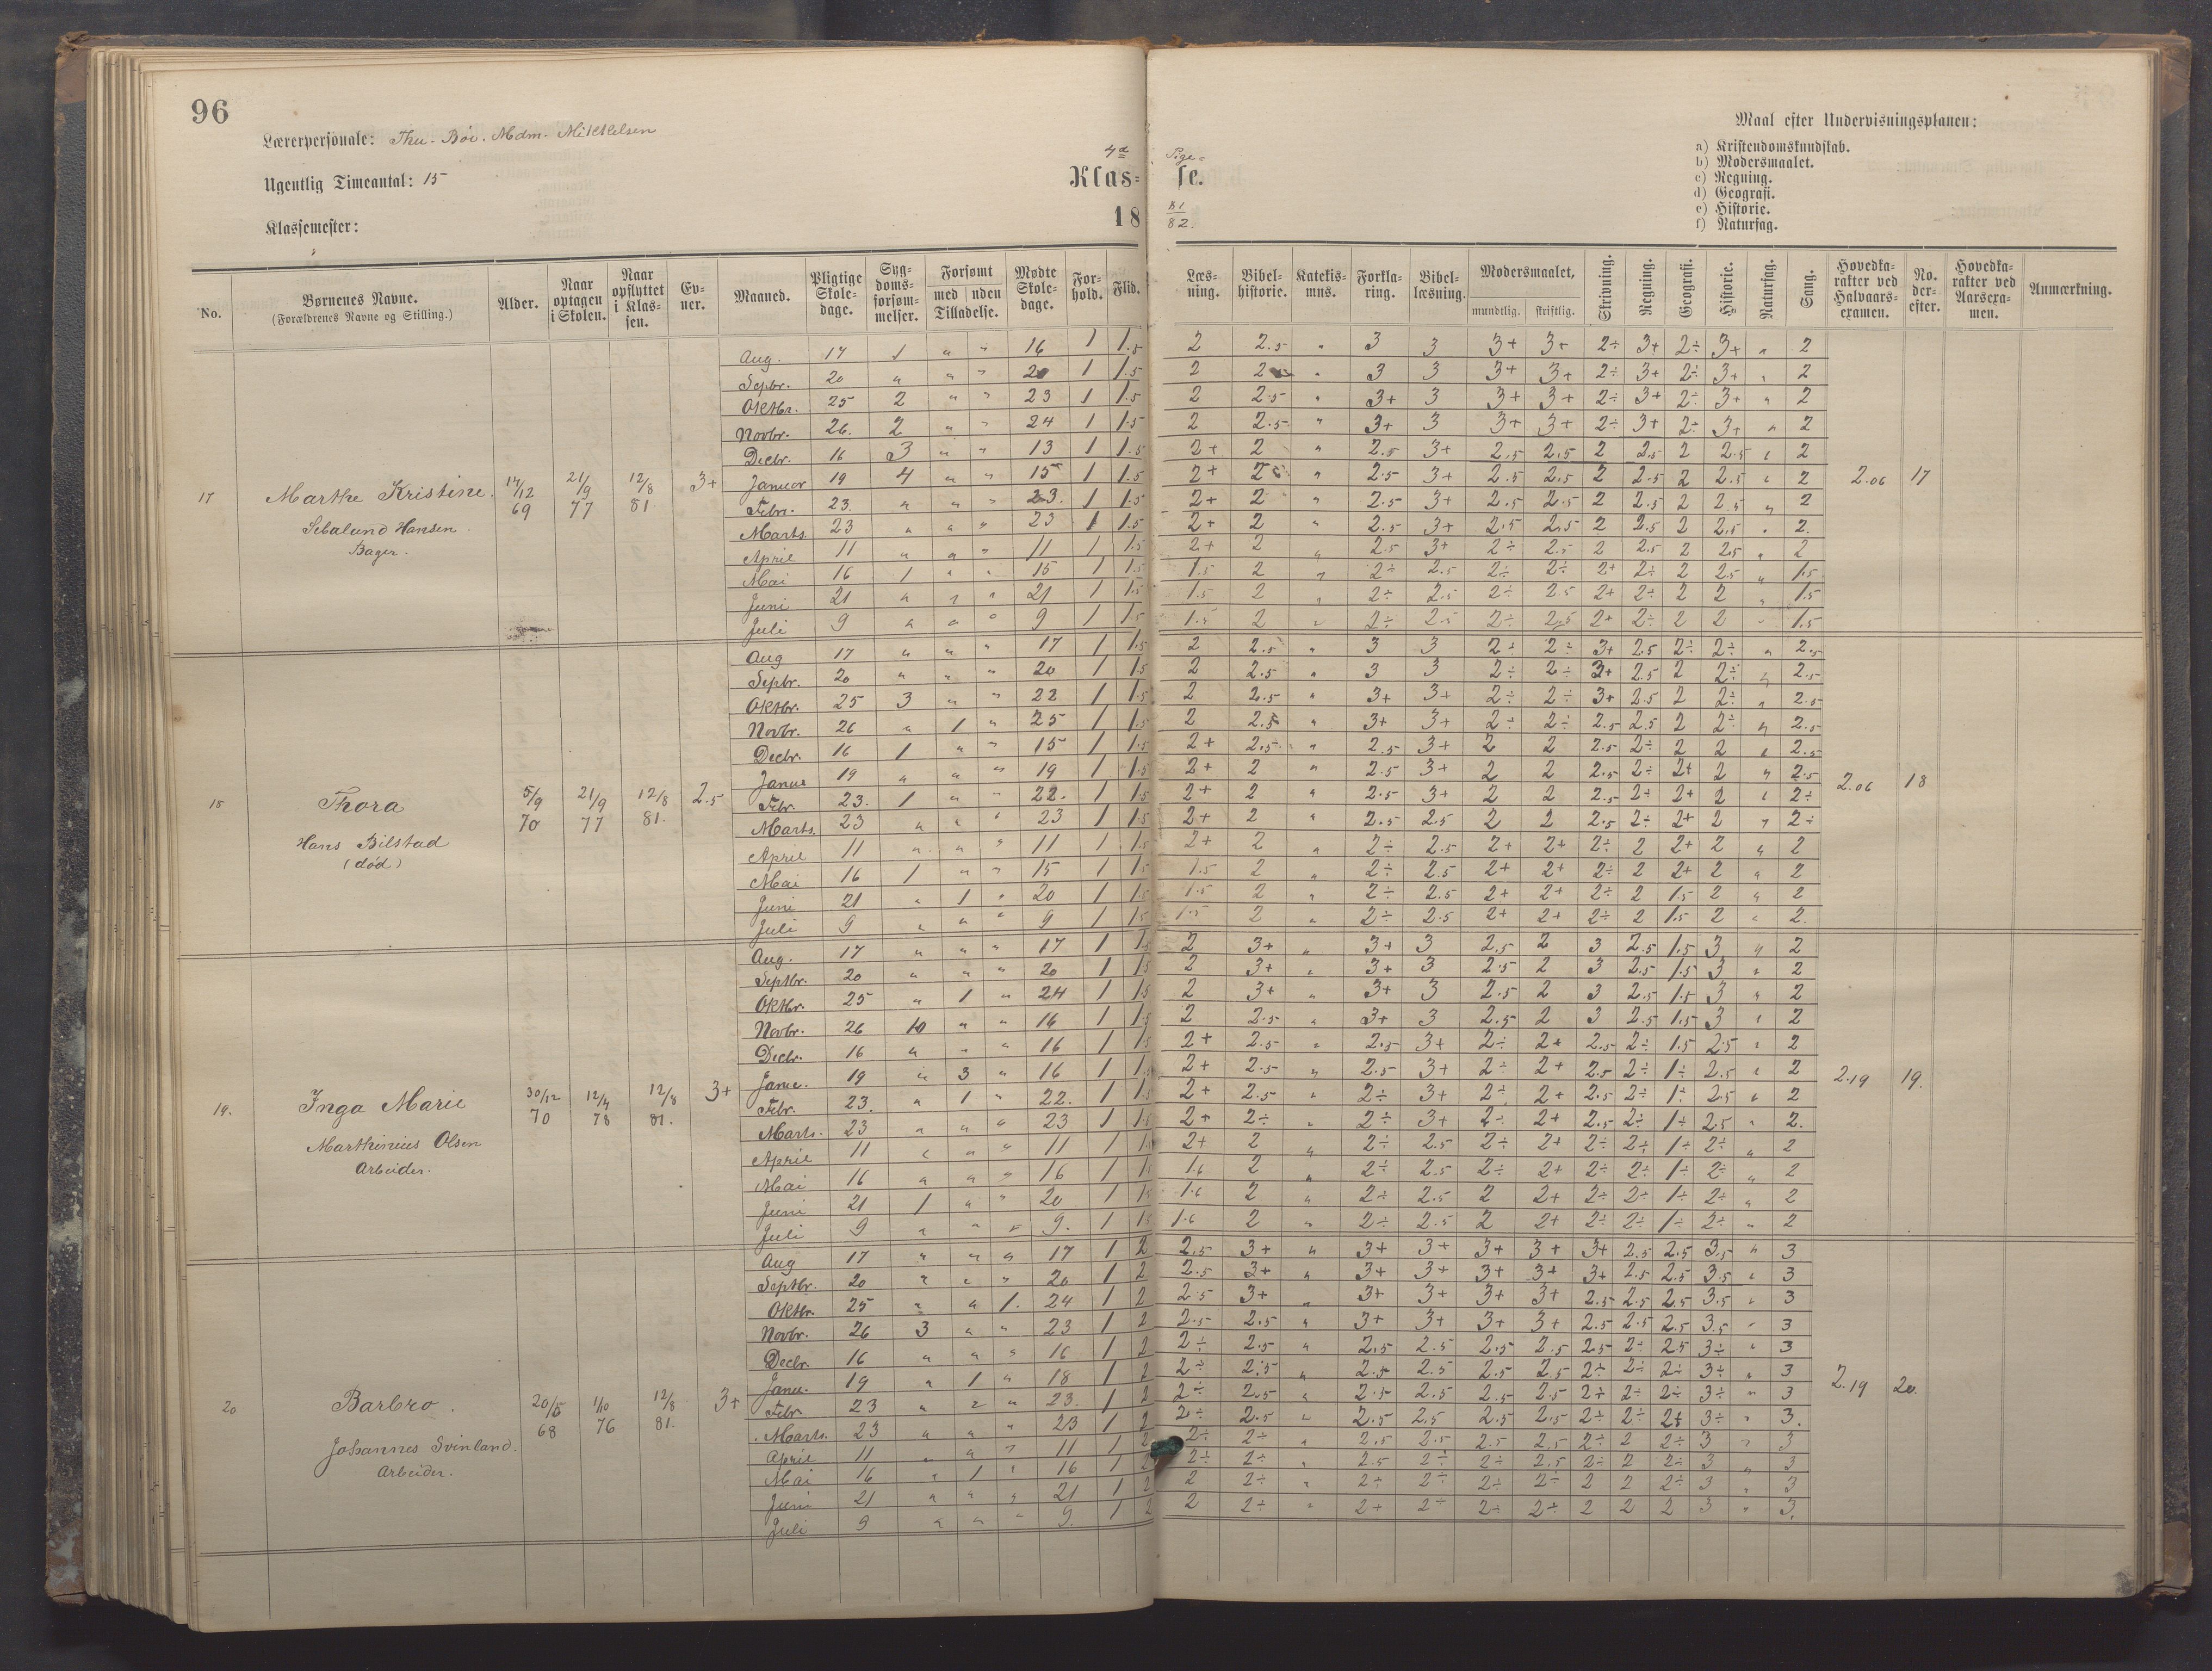 96
Lærerpersonale: Thu. Böe. Mdm. Mikkelsen
Ugentlig Timeantal: 15
Klassemester:
4de Pige=
Klas= se.
18 81/82.
Maal efter Undervisningsplanen:
a) Kristendomskundskab.
b) Modersmaalet.
c) Regning.
d) Geografi.
e) Historie.
f) Naturfag.
No. Børnenes Navne. (Forældrenes Navne og Stilling.) Alder. Naar optagen i Skolen. Naar opflyttet i Klassen. Evner. Maaned. Pligtige Skoledage. Sygdomsforsømmelser. Forsømt med uden Tilladelse. Mødte Skoledage. Forhold. Flid. Læsning. Bibelhistorie. Katekismus. Forklaring. Bibellæsning. Modersmaalet, mundtlig. skriftlig. Skrivning. Regning. Geografi. Historie. Naturfag. Sang. Hovedkarakter ved Halvaarsexamen. No. derefter. Hovedkarakter ved Aarsexamen. Anmærkning.
17 Marthe Kristine. 14/12 69 21/9 77 12/8 81. 3+ 2.06 17
Sebalund Hansen.
Bager.
Aug. 17 1 " " 16 1 1.5 2 2.5 " 3 3 3+ 3+ 2÷ 3+ 2÷ 3+ " 2
Sepbr. 20 " " " 20 1 1.5 2 " 3 3 3+ 3+ 2÷ 3+ 2÷ 3+ " 2
Oktbr. 25 2 " " 23 1 1.5 2 2.5 " 3+ 3 3+ 3+ 2÷ 3+ 2÷ 3+ " 2
Novbr. 26. 2 " " 24 1 1.5 2 2.5 " 3+ 3 3+ 3+ 2÷ 3+ 2÷ 3+ " 2
Decbr. 16 3 " " 13 1 1.5 2+ 2 " 2.5 3+ 2.5 2.5 2 2.5 2 2.5 " 2
Januar 19 4 " " 15 1 1.5 2+ 2 " 2.5 3+ 2.5 2.5 2 2.5 2 2.5 " 2
Febr. 23. " " " 23. 1 1.5 2+ 2 " 2.5 3+ 2.5 2.5 2 2.5 2 2.5 " 2
Marts. 23 " " " 23 1 1.5 2+ 2 " 2.5 3+ 2.5 2.5 2 2.5 2 2.5 " 2.
April 11 " " " 11 1 1.5 2+ 2 " 2.5 3+ 2÷ 2.5 2 2.5 2 2.5 " 2
Mai 16 1 " " 15 1 1.5 1.5 2 " 2÷ 2.5 2÷ 2÷ 2+ 2÷ 2 2.5 " 1.5
Juni 21 " " " 21 1 1.5 1.5 2 " 2÷ 2.5 2÷ 2.5 2+ 2÷ 2 2 " 1.5
Juli 9 " " " 9 1 1.5 1.5 2 " 2÷ 2.5 2÷ 2.5 2+ 2÷ 2 2 " 1.5
18 Thora 5/9 70 21/9 77 12/8 81. 2.5 2.06 18
Hans Bilstad
(död)
Aug 17 " " " 17 1 1.5 2 2.5 " 3 3 2÷ 2÷ 3+ 2.5 2÷ 2÷ " 2.5
Sepbr. 20 " " " 20 1 1.5 2 2.5 " 3 3 2÷ 2÷ 3+ 2.5 2 2÷ " 2.5
Oktbr. 25 3 " " 22 1 1.5 2 2.5 " 3+ 3+ 2÷ 2÷ 3+ 2.5 2 2÷ " 2.5
Novbr. 26 " 1 " 25 1 1.5 2 2.5 " 3+ 3+ 2÷ 2÷ 2.5 2.5 2 2÷ " 2.5
Decbr. 16 1 " " 15 1 1.5 2+ 2.5 " 2.5 3+ 2 2 2.5 2÷ 2 2 " 2.5
Janua 19 " " " 19 1 1.5 2+ 2 " 2.5 3+ 2 2 2.5 2÷ 2+ 2 " 2.5
Febr. 23. 1 " " 22. 1 1.5 2+ 2 " 2.5 3+ 2 2 2.5 2÷ 2+ 2 " 2÷
Marts. 23 " " " 23 1 1.5 2+ 2 " 2.5 2.5 2 2 2.5 2÷ 2+ 2 " 2÷
April 11 " " " 11 1 1.5 2+ 2 " 2÷ 2.5 2+ 2+ 2÷ 2 2+ 2 " 2
Mai 16 1 " " 15 1 1.5 1.5 2 " 2÷ 2.5 2+ 2+ 2÷ 2 2+ 2 " 2
Juni 21 " 1 " 20 1 1.5 1.5 2 " 2÷ 2.5 2+ 2+ 2÷ 2 1.5 2 " 2
Juli 9 " " " 9 1 1.5 1.5 2 " 2÷ 2.5 2+ 2+ 2÷ 2 1.5 2 " 2.
19. Inga Marie 30/12 70 12/4 78 12/8 81. 3+ 2.19 19.
Marthinius Olsen
Arbeider.
Aug. 17 " " " 17 1 1.5 2 3+ " 3+ 3 2.5 2 3 2.5 1.5 3 " 2
Septbr. 20 " " " 20 1 1.5 2 3+ " 3+ 3 2.5 2 3 2.5 1.5 3 " 2
Oktbr. 25 " 1 " 24 1 1.5 2 3+ " 3+ 3 2.5 2 3 2.5 1.5 3 " 2
Novbr. 26 10 " " 16 1 1.5 2 2.5 " 3+ 3 2.5 2 3 2.5 1.5 3 " 2
Decbr. 16 " " " 16 1 1.5 2+ 2.5 " 2.5 3+ 2÷ 2+ 2.5 2÷ 1.5 2.5 " 2
Janu. 19 " 3 " 16 1 1.5 2+ 2.5 " 2.5 3+ 2÷ 2+ 2.5 2÷ 1÷ 2.5 " 2
Febr. 23. " 1 " 22. 1 1.5 2+ 2.5 " 2÷ 3+ 2÷ 2+ 2.5 2÷ 1÷ 2.5 " 2
Marts. 23 " " " 23 1 1.5 2+ 2÷ " 2÷ 3+ 2÷ 2+ 2.5 2÷ 1÷ 2.5 " 2.
April 11 " " " 11 1 1.5 2+ 2 " 2÷ 2.5 2÷ 2+ 2÷ 2÷ 1÷ 2÷ " 2
Mai 16 " " " 16 1 1.5 1.6 2 " 2÷ 2.5 2÷ 2+ 2÷ 2÷ 1÷ 2÷ " 2
Juni 21 1 " " 20 1 1.5 1.6 2 " 2÷ 2.5 2 2+ 2÷ 2÷ 1÷ 2÷ " 2
Juli 9 " " " 9. 1 1.5 1.6 2 " 2÷ 2.5 2 2+ 2÷ 2÷ 1÷ 2÷ " 2
20 Barbro. 20/5 68 1/10 76 12/8 81. 3+ 2.19 20.
Johannes Svinland.
Arbeider.
Aug 17 " " " 17 1 2 2.5 3+ " 3+ 3+ 3+ 3+ 3+ 2.5 2.5 3.5 " 3
Septbr. 20 " " " 20 1 2 2.5 3+ " 3+ 3+ 3+ 3+ 3+ 2.5 2.5 3.5 " 3
Oktbr. 25 " " 1. 24 1 2 2.5 3+ " 3+ 3+ 3+ 3+ 2.5 2.5 2.5 3.5 " 3
Novbr. 26 3 " " 23 1 2 2.5 2.5 " 3+ 3+ 3+ 3+ 2.5 2.5 2.5 3.5 " 3
Decbr. 16 " " " 16 1 2 2÷ 2.5 " 2.5 2.5 2.5 2.5 2.5 2÷ 2.5 3÷ " 3
Janu. 19 " 1 " 18 1 2 2÷ 2.5 " 2.5 2.5 2.5 2.5 2÷ 2÷ 2÷ 3÷ " 3
Febr. 23 " " " 23. 1 2 2÷ 2.5 " 2.5 2.5 2.5 2.5 2÷ 2÷ 2÷ 3÷ " 3
Marts. 23 " " " 23 1 2 2÷ 2.5 " 2.5 2.5 2.5 2.5 2÷ 2÷ 2÷ 3÷ " 3.
April 11 " " " 11 1 2 2÷ 2÷ " 2.5 2.5 2.5 2.5 2÷ 2 2÷ 3 " 3
Mai 16 " 1 " 16 1 2 2÷ 2÷ " 2.5 2÷ 2÷ 2.5 2÷ 2 2÷ 3 " 3
Juni 21 " " " 21 1 2 2 2÷ " 2÷ 2÷ 2÷ 2÷ 2 2 2÷ 3 " 3
Juli 9 " " " 9. 1 2 2 2÷ " 2+ 2÷ 2÷ 2÷ 2 2 2 3 " 3.